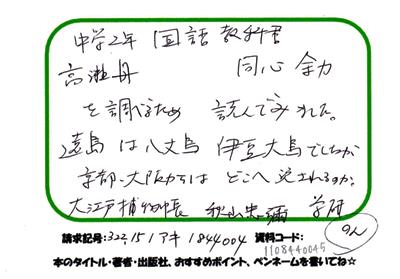 中学2年 国語 教科書
高瀬舟 同心 余力
を調べるため 読んでみました。
遠島は八丈島 伊豆大島でしたが
京都、大阪からは どこへ 送されるのか。
大江戸捕物帳 秋山忠彌 学研
請求記号:322.15 アキ 1844004 資料コード:
1108440045
本のタイトル・著者・出版社、おすすめポイント、ペンネームを書いてね☆